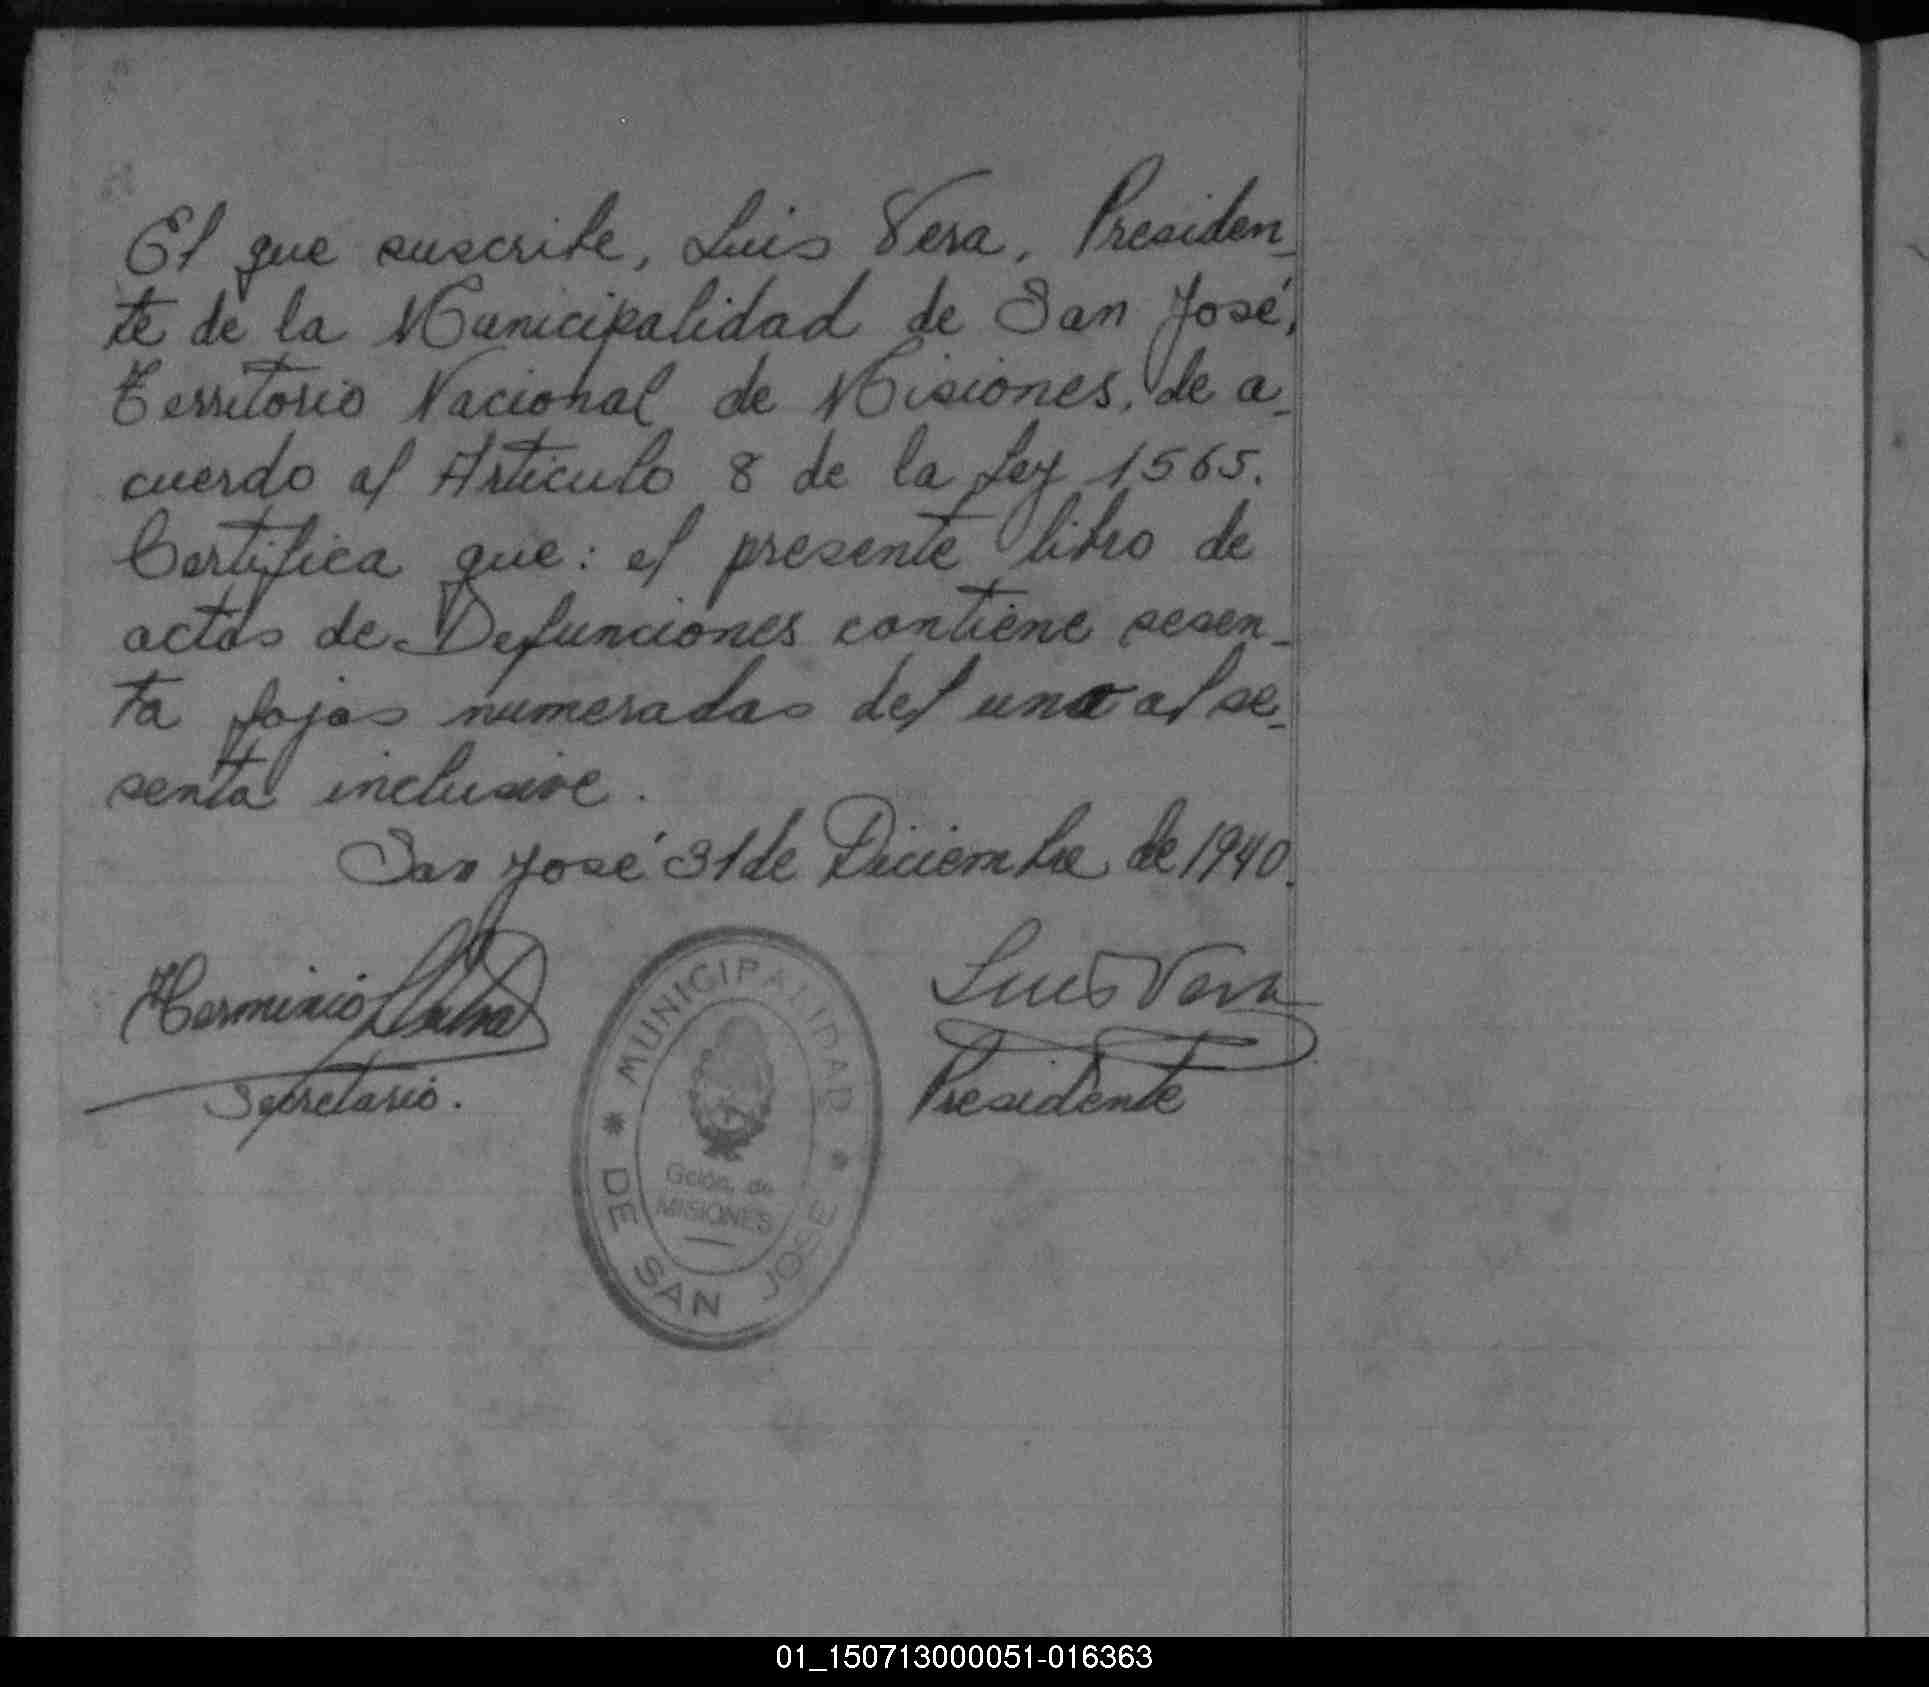 El que suscribe, Luis Vera, Presiden-
te de la Municipalidad de San José,
Territorio Nacional de Misiones, de a-
cuerdo al Artículo 8 de la Ley 1565.
Certifica que: el presente libro de
actas de Defunciones contiene sesen-
ta fojas numeradas del uno al se-
senta inclusive.
San José 31 de Diciembre de 1940.
Herminio
Luis Vera
Secretario.
Presidente
MUNICIPALIDAD
DE SAN JOSE
Gción. de
MISIONES
01_150713000051-016363